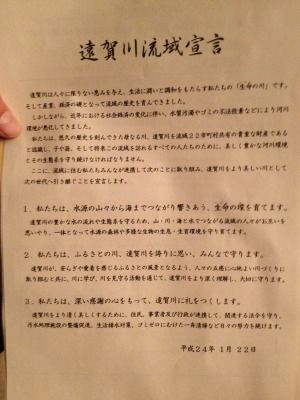 遠賀川流域宣言
遠賀川は人々に限りない恵みを与え、生活に潤いと調和をもたらす私たちの「生命の川」です。
そして産業、経済の礎となって流域の歴史を育んできました。
しかしながら、近年における社会経済の変化に伴い、水質汚濁やゴミの不法投棄などにより河川
環境が悪化してきました。
私たちは、悠久の歴史を刻んできた母なる川、遠賀川を流域22市町村共有の貴重な財産である
と認識し、子や孫、そして将来この流域を訪れるすべての人たちのために、美しく豊かな河川環境
とその生態系を守り続けなければなりません。
ここに、流域に住む私たちみんなが連携して次のことに取り組み、遠賀川をより美しい川として
次の世代へ引き継ぐことを宣言します。
1．私たちは、水源の山々から海までつながり響きあう、生命の環を育てます。
遠賀川の豊かな水の流れや生態系を守るため、山・川・海と水でつながる流域の人々がお互いを
思いやり、一体となって水源の森林や多様な生物の生息・生育環境を守り育てます。
2．私たちは、ふるさとの川、遠賀川を誇りに思い、みんなで守ります。
遠賀川が、安らぎや愛着を感じるふるさとの風景となるよう、人々の五感に心地よい川づくりに
取り組むと共に、川に学び、川を見守る活動を通じて、遠賀川をより深く理解し、大切に守ります。
3．私たちは、深い感謝の心をもって、遠賀川に礼をつくします。
遠賀川をより清く美しくするために、住民、事業者及び行政が連携して、関連する法令を守り、
汚水処理施設の整備促進、生活排水対策、ゴミゼロにむけた一斉清掃など日々の努力を続けます。
平成24年 1月 22日